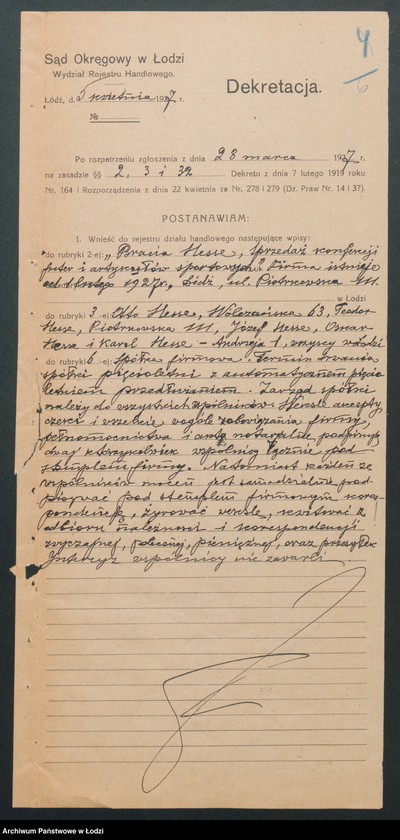 4
6
Sąd Okręgowy w Łodzi
Wydział Rejestru Handlowego.
Łódź, d. 5 kwietnia 1927 r.
№
Dekretacja.
Po rozpatrzeniu zgłoszenia z dnia 28 marca 1927 r.
na zasadzie §§ 2, 3 i 32 Dekretu z dnia 7 lutego 1919 roku
Nr. 164 i Rozporządzenia z dnia 22 kwietnia za Nr. 278 i 279 (Dz. Praw Nr. 14 i 37).
POSTANAWIAM:
1. Wnieść do rejestru działu handlowego następujące wpisy:
do rubryki 2-ej: „Bracia Hesse, sprzedaż konfekcji
futer i artykułów sportowych" Firma istnieje
od 1 lutego 1927 r., Łódź, ul. Piotrkowska 111.
w Łodzi
do rubryki 3-ej: Otto Hesse, Wólczańska 63, Teodor
Hesse, Piotrkowska 111, Józef Hesse, Oskar
Hesse i Karol Hesse - Andrzeja 1, wszyscy
do rubryki 6-ej: Spółka firmowa. Termin trwania
spółki pięcioletni z automatycznem pięcio
letniem przedłużaniem. Zarząd spółki
należy do wszystkich wspólników. Weksle, akcepty,
czeki i wszelkie wogóle zobowiązania firmy,
pełnomocnictwa i akty notarjalne podpisują
dwaj wspólnicy łącznie pod
stemplem firmy. Natomiast każden ze
wspólników mocen jest samodzielnie pod
pisywać pod stemplem firmowym kores
pondencję, żyrować weksle, kwitować z
odbioru należności i korespondencji
zwyczajnej, poleconej, pieniężnej, oraz przesyłek
Intercyz wspólnicy nie zawarli
Archiwum Państwowe w Łodzi